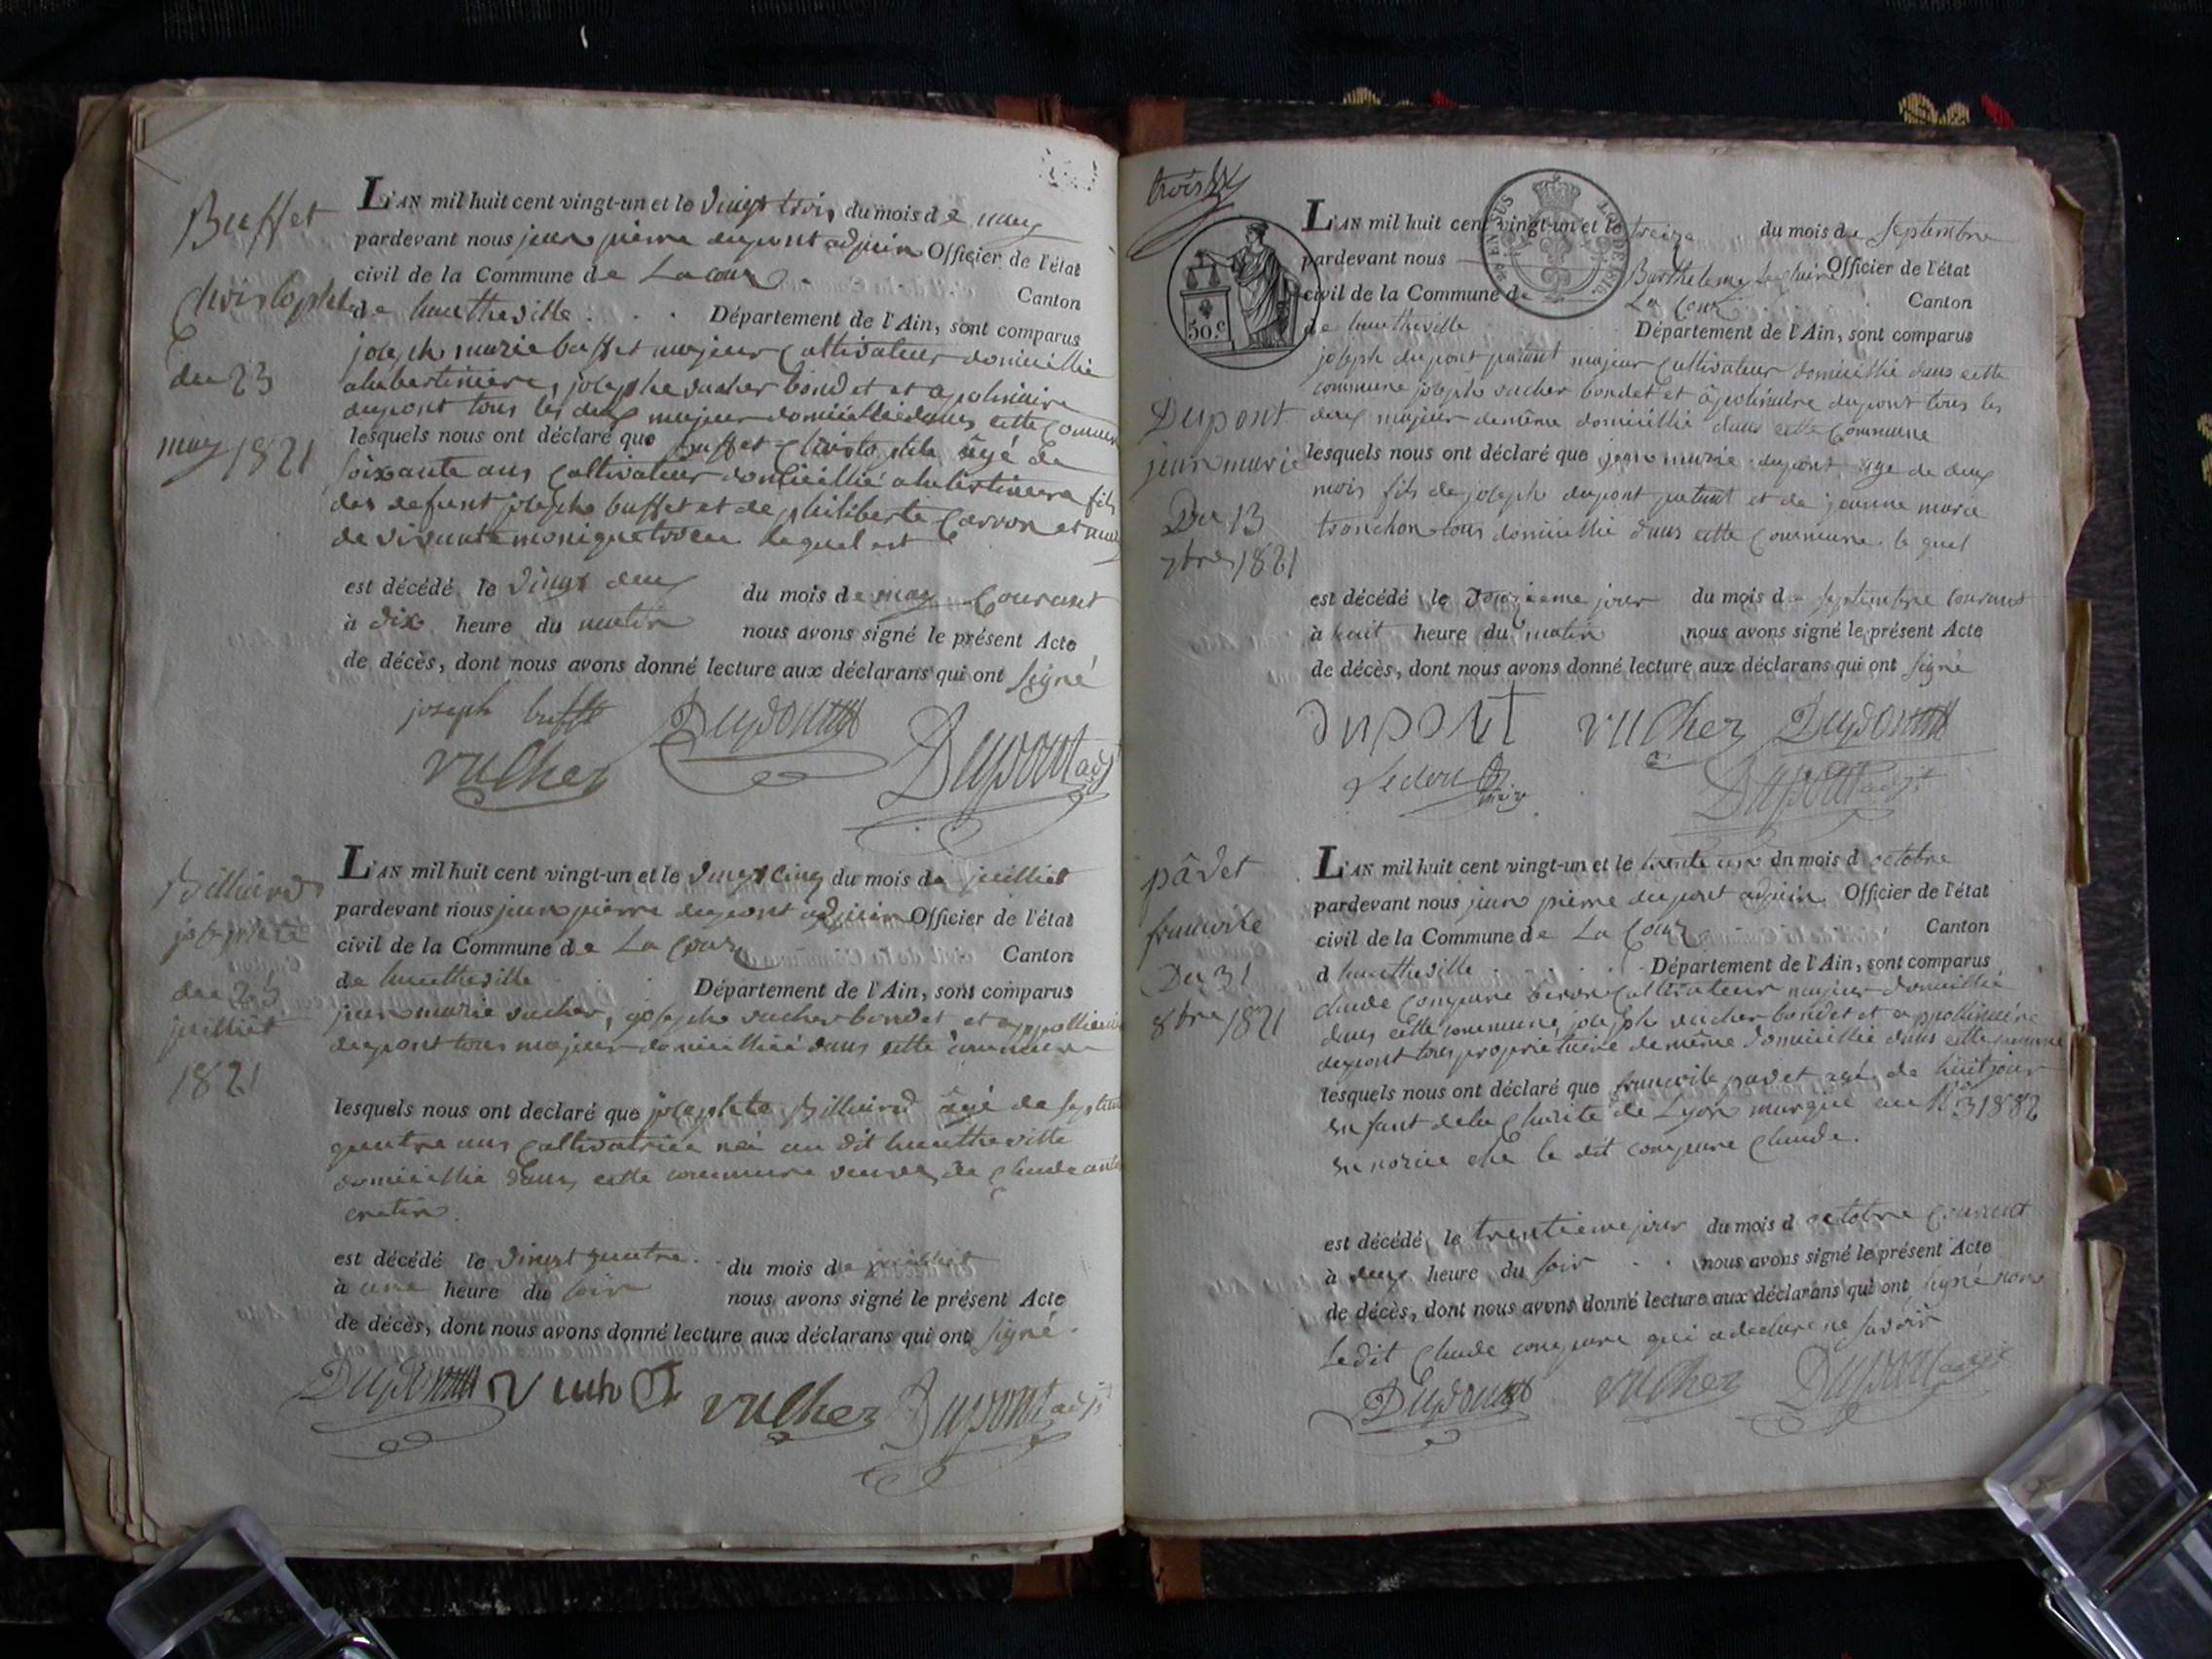 Buffet
Christophle
du 23
may 1821
L'AN mil huit cent vingt-un et le vingt trois du mois de may
pardevant nous jean pierre dupont adjoin Officier de l'état
civil de la Commune de La coux
Canton
de hautheville . . . Département de l'Ain, sont comparus
joseph marie buffet majeur Cultivateur domicillié
alabertiniere, josephe vucher bondet et apolinaire
dupont tous les deux majeur domicillié dans cette Commune
lesquels nous ont déclaré que buffet Christophle âgé de
soixante ans Cultivateur domicillié alabertiniere fils
des defunt joseph buffet et de philiberte Carron et
de vivante monique lequel est
est décédé le vingt deux du mois de may Courant
à dix heure du matin nous avons signé le présent Acte
de décès, dont nous avons donné lecture aux déclarans qui ont signé
joseph buffet Dupont
vucher Dupont adjt
Billiard
josephte
du 25
juilliet
1821
L'AN mil huit cent vingt-un et le vingt cinq du mois de juilliet
pardevant nous jean pierre dupont adjoin Officier de l'état
civil de la Commune de La Coux
Canton
de hautheville Département de l'Ain, sont comparus
jean marie vucher, joseph vucher bondet et
dupont tous majeur domicillié dans cette commune
lesquels nous ont declaré que josephte Billiard âgé de
quatre ans Cultivatrice né au dit hautheville
domicillié dans cette commune veuve de Claude
cretin
est décédé le vingt quatre du mois de juilliet
à une heure du soir nous avons signé le présent Acte
de décès, dont nous avons donné lecture aux déclarans qui ont signé.
Dupont vucher Dupont adjt
trois
50 c.
Dupont
jean marie
Du 13
7bre 1821
L'AN mil huit cent vingt-un et le treize du mois de septembre
pardevant nous Barthelemy Officier de l'état
civil de la Commune de La Coux Canton
de hautheville Département de l'Ain, sont comparus
joseph dupont majeur Cultivateur domicillié dans cette
commune joseph vucher bondet et apolinaire dupont tous les
deux majeur demême domicillié dans cette Commune
lesquels nous ont déclaré que jean marie dupont âgé de deux
mois fils de joseph dupont et de jeanne marie
tronchon tous domicillié dans cette Commune le quel
est décédé le jour du mois de septembre courant
à huit heure du matin nous avons signé le présent Acte
de décès, dont nous avons donné lecture aux déclarans qui ont signé
dupont vucher Dupont
maire Dupont adjt
pâdet
francoise
Du 31
8bre 1821
L'AN mil huit cent vingt-un et le trente un du mois d octobre
pardevant nous jean pierre dupont adjoin Officier de l'état
civil de la Commune de La Coux Canton
d hautheville Département de l'Ain, sont comparus
claude compare Cultivateur majeur domicillié
dans cette commune, joseph vucher bondet et appollinaire
dupont tous propriétaire demême domicillié dans cette commune
lesquels nous ont déclaré que francoise padet agé de huit jour
enfant dela Charité de Lyon marqué au No 31882
en norice ché le dit compare Claude.
est décédé le trentieme jour du mois d octobre courant
à deux heure du soir nous avons signé le présent Acte
de décès, dont nous avons donné lecture aux déclarans qui ont signé non
Le dit Claude compare qui a déclaré ne savoir
Dupont vucher Dupont adjt